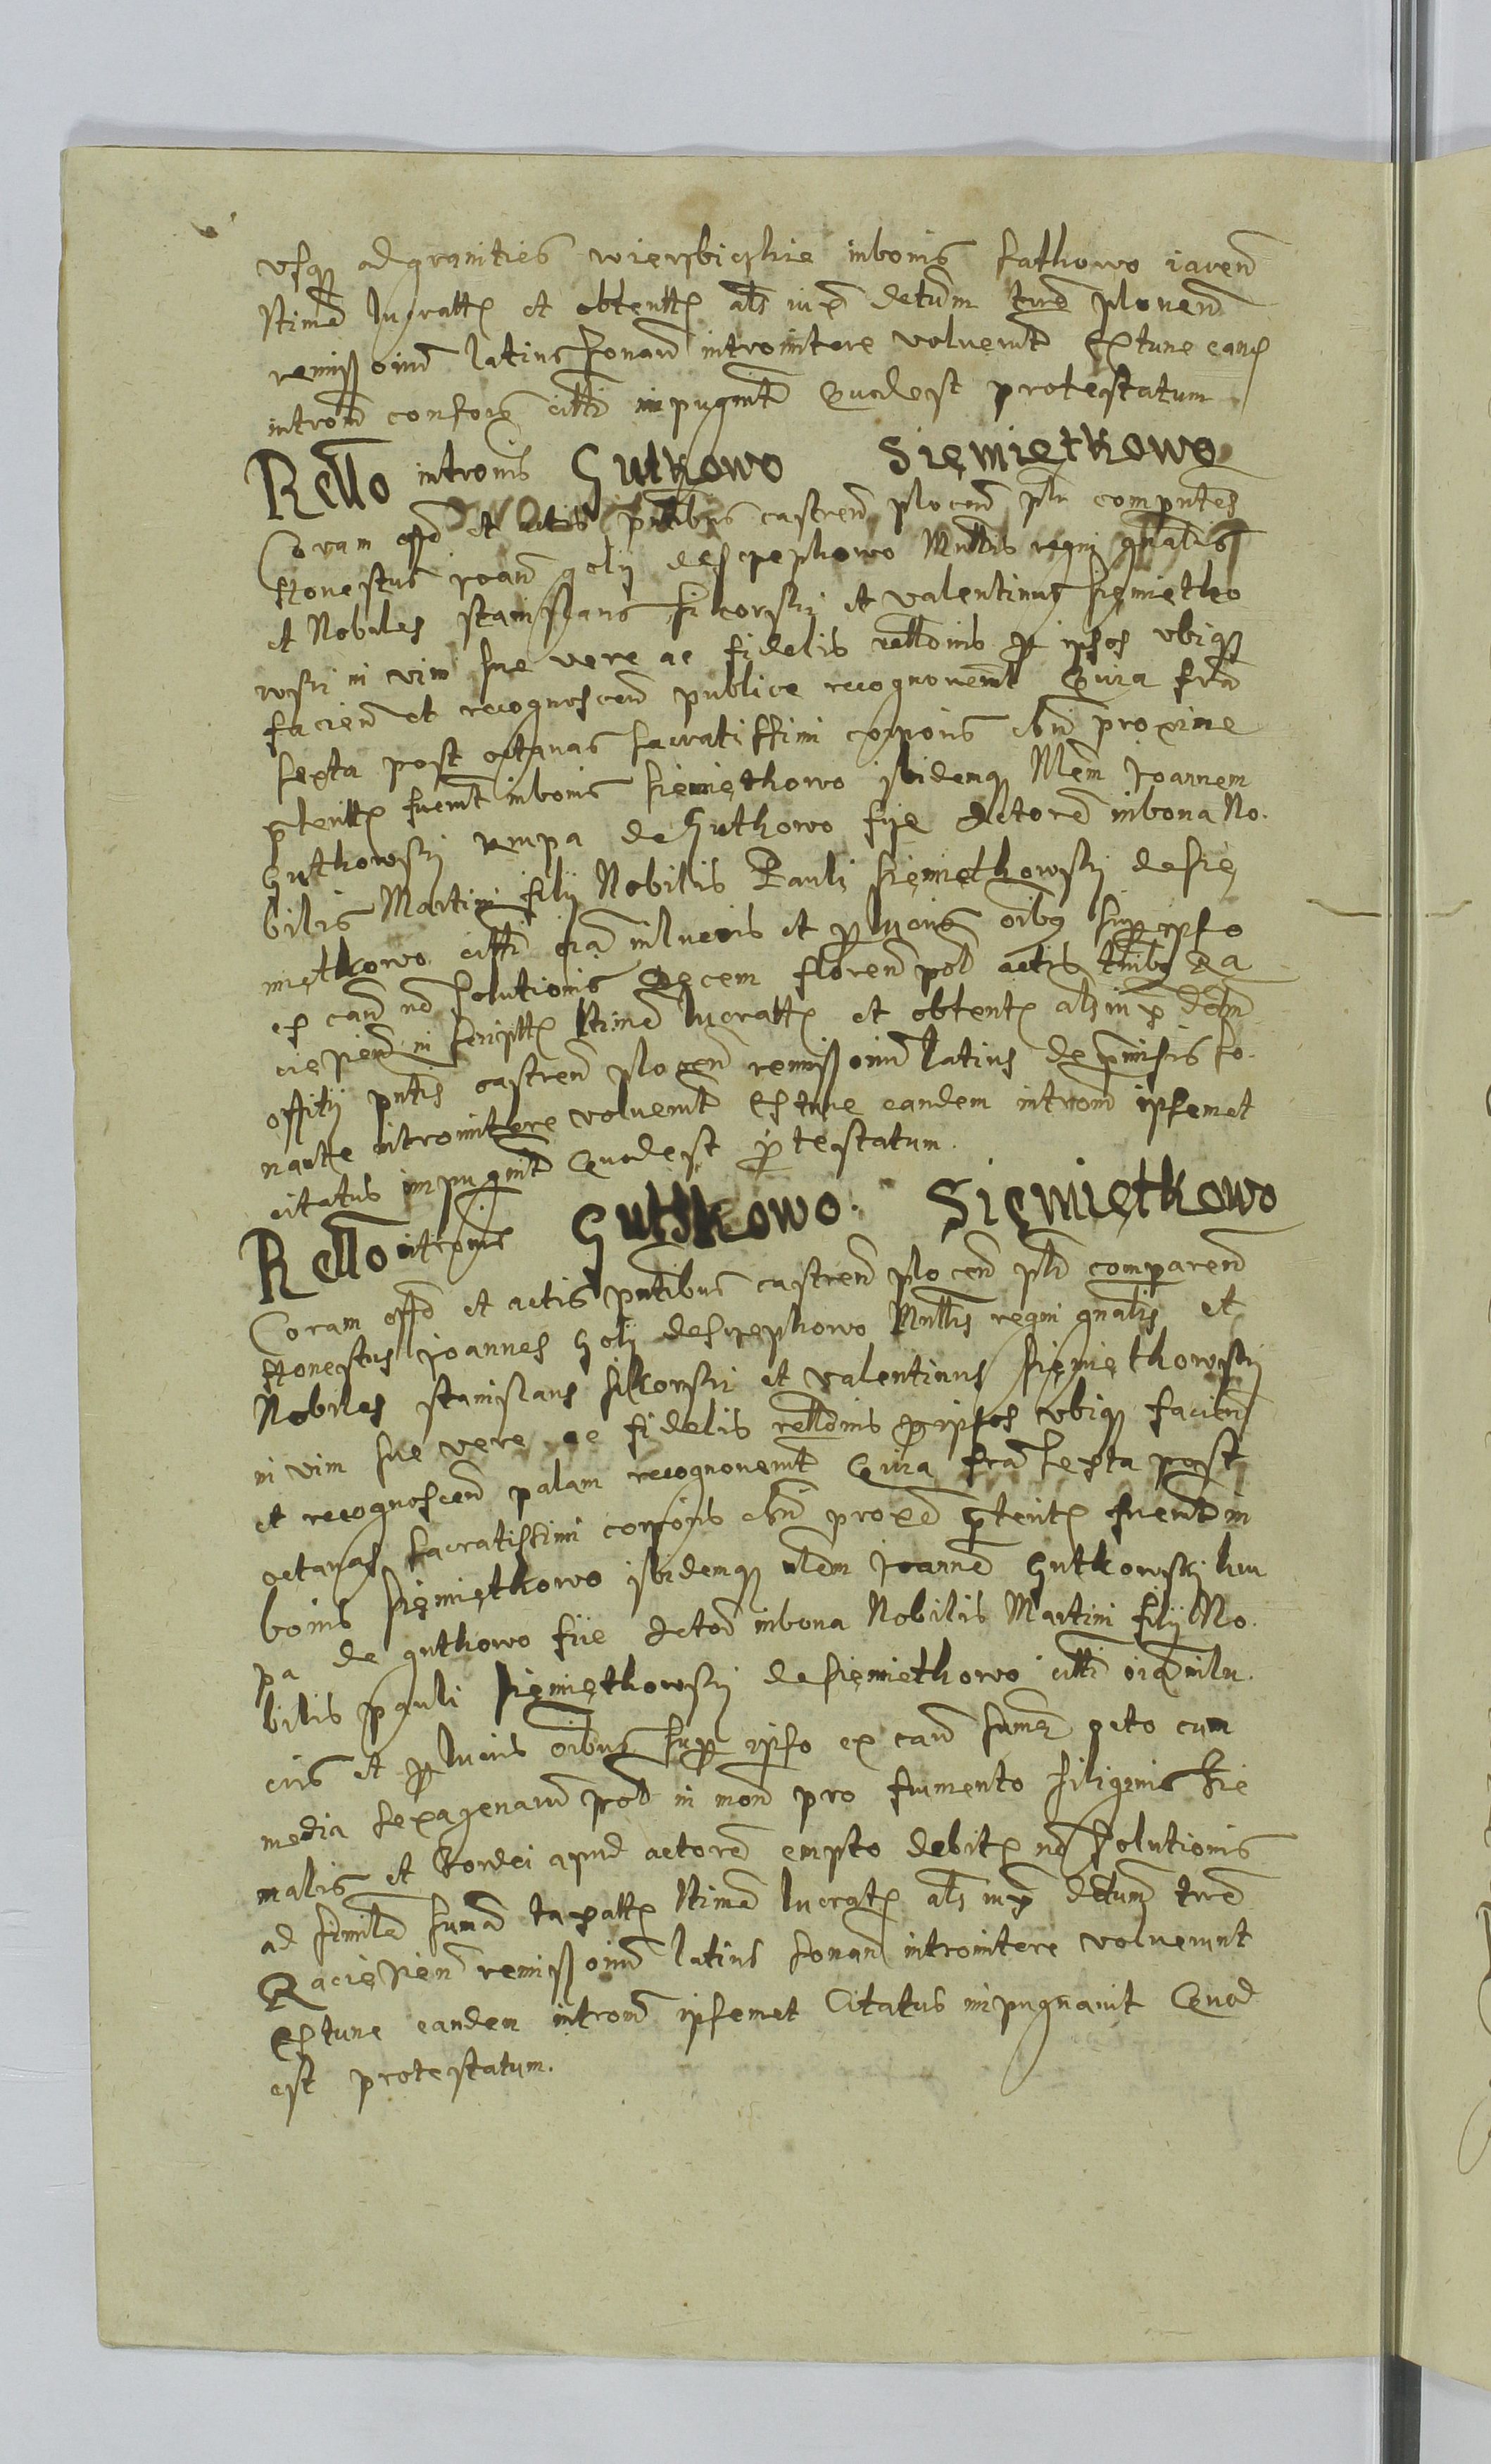 usq adgranities wiersbiczkie inbonis kathowo iacen
Ntime lucratt et obtentt als iux detum tre plonen
remiss oind latius sonan intromitere voluerunt Extunc eand
introm consors citti impugnit Quodest protestatum
Rello intromis Gutkowo Siemiętkowo
Coram offo et actis pntibus castren plocen plr comprntes
Honestus joan goly descrephowo Mnllis regni gnalis
et Nobiles stanislaus sikorski et valentinus siemietko
wski in vim sue vere ac fidelis relldonis p ipsos ubiq
facien et recognoscen publice recognoverunt Quia fra
sexta post octavas sacratissimi corporis chri proxime
pteritt fuerunt inbonis siemięthowo ibidemq Mem Joannem
Guthowski rempa de Guthowo fye actore inbona No.
bilis Martini filij Nobilis Pauli siemiethowskj desię
miethowo citti oia inlucris et plucris oibq supr ipso
ex caun no solutionis decem floren pol actis tnibq Ra
cięzien in scriptt Ntime lucratt et obtentt als iux detm
offitij pntis castren plocen remiss oind latius de pmissis so.
nantte intromitere voluerunt Extunc eandem introm ipsemet
citatus impugnit Quodest ptestatum.
Rello intromis Gutskowo. Siemiętkowo
Coram offo et actis pntibus castren plocen plr comparen
Honestus joannes Goly descrephowo Mnllis regni gnalis et
Nobiles stanislaus sikorski et valentinus siemiethowskj
in vim sue vere ac fidelis relldonis p ipsos ubiq facien
et recognoscen palam recognoverunt Quia fra sexta post
octavas sacratissimi corporis chri proxe pterit fuerunt in
bonis siemiethowo ibidemq Mem joanne Gutkowski hru
pa de guthowo fiie actore inbona Nobilis Martini filij No.
bilis pauli siemiethowskj desiemiethowo citti oia inlu.
cris et plucris oibus supr ipso ex caun sume octo cum
media sexagenarum pol in mon pro frumento siliginis Sie
malis et Hordei apud actore empto debitt no solutionis
ad simile suma taxatt Ntime lucratt als iux detum tre
Raciezien remiss oind latius sonan intromitere voluerunt
Extunc eandem introm ipsemet Citatus impugnavit Quod
est protestatum.